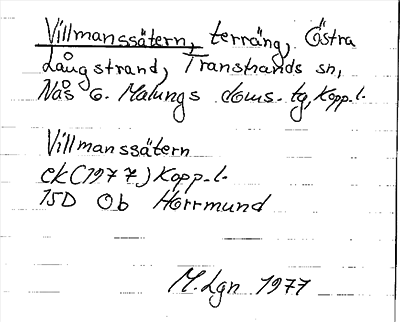 Villmanssätern, terräng, Östra
Långstrand, Transtrands sn,
Nås o. Malungs doms. tg, Kopp. l.
Villmanssätern
ek (1977) Kopp. l.
15D Ob Hörrmund
M. Lgn 1977